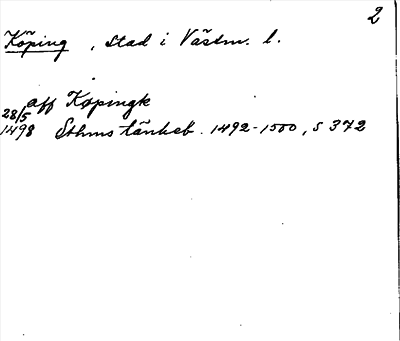 2
Köping, stad i Västm. l.
aff Köpingk
28/5
1498 Sthms tänkeb. 1492-1500, s 372